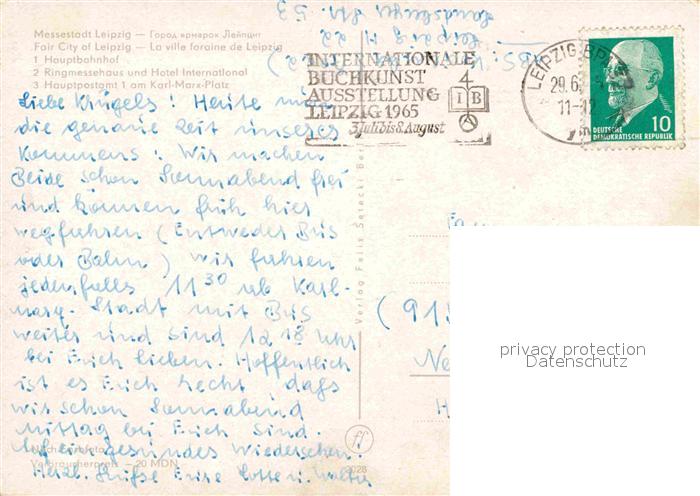 Messestadt Leipzig — Город ярмарок Лейпциг
Fair City of Leipzig — La ville foraine de Leipzig
1 Hauptbahnhof
2 Ringmessehaus und Hotel International
3 Hauptpostamt 1 am Karl-Marx-Platz
Liebe Krügels! Heute nur
die genaue Zeit unseres
Kommens! Wir machen
Beide schon Sonnabend frei
und können früh hier
wegfahren (Entweder Bus
oder Bahn) wir fahren
jedenfalls 11 30 ab Karl-
Marx-Stadt mit Bus
weiter und sind 12 18 Uhr
bei Euch Lieben. Hoffentlich
ist es Euch recht, dass
wir schon Sonnabend
mittag bei Euch sind.
Auf ein gesundes Wiedersehen.
Herzl. Grüsse Eure Lotte u. Walter
Verbraucherpreis —20 MDN
Verlag Felix Setecki
ff
INTERNATIONALE
BUCHKUNST
AUSSTELLUNG
LEIPZIG 1965
3. Juli bis 8. August
IB
A
LEIPZIG BPA
29.6.
11-12
DEUTSCHE
DEMOKRATISCHE REPUBLIK
10
Leipzig N 22
Landsberger Str. 53
(915
Ne
H
privacy protection
Datenschutz